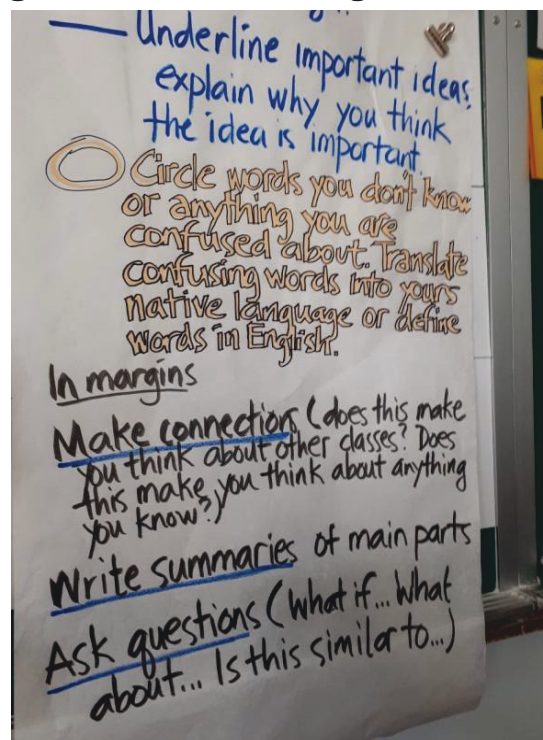 Underline important ideas,
explain why you think
the idea is important.
Circle words you don't know
or anything you are
confused about. Translate
confusing words into yours
native language or define
words in English.
In margins
Make connections (does this make
you think about other classes? Does
this make you think about anything
you know?)
Write summaries of main parts
Ask questions (What if... What
about... Is this similar to...)